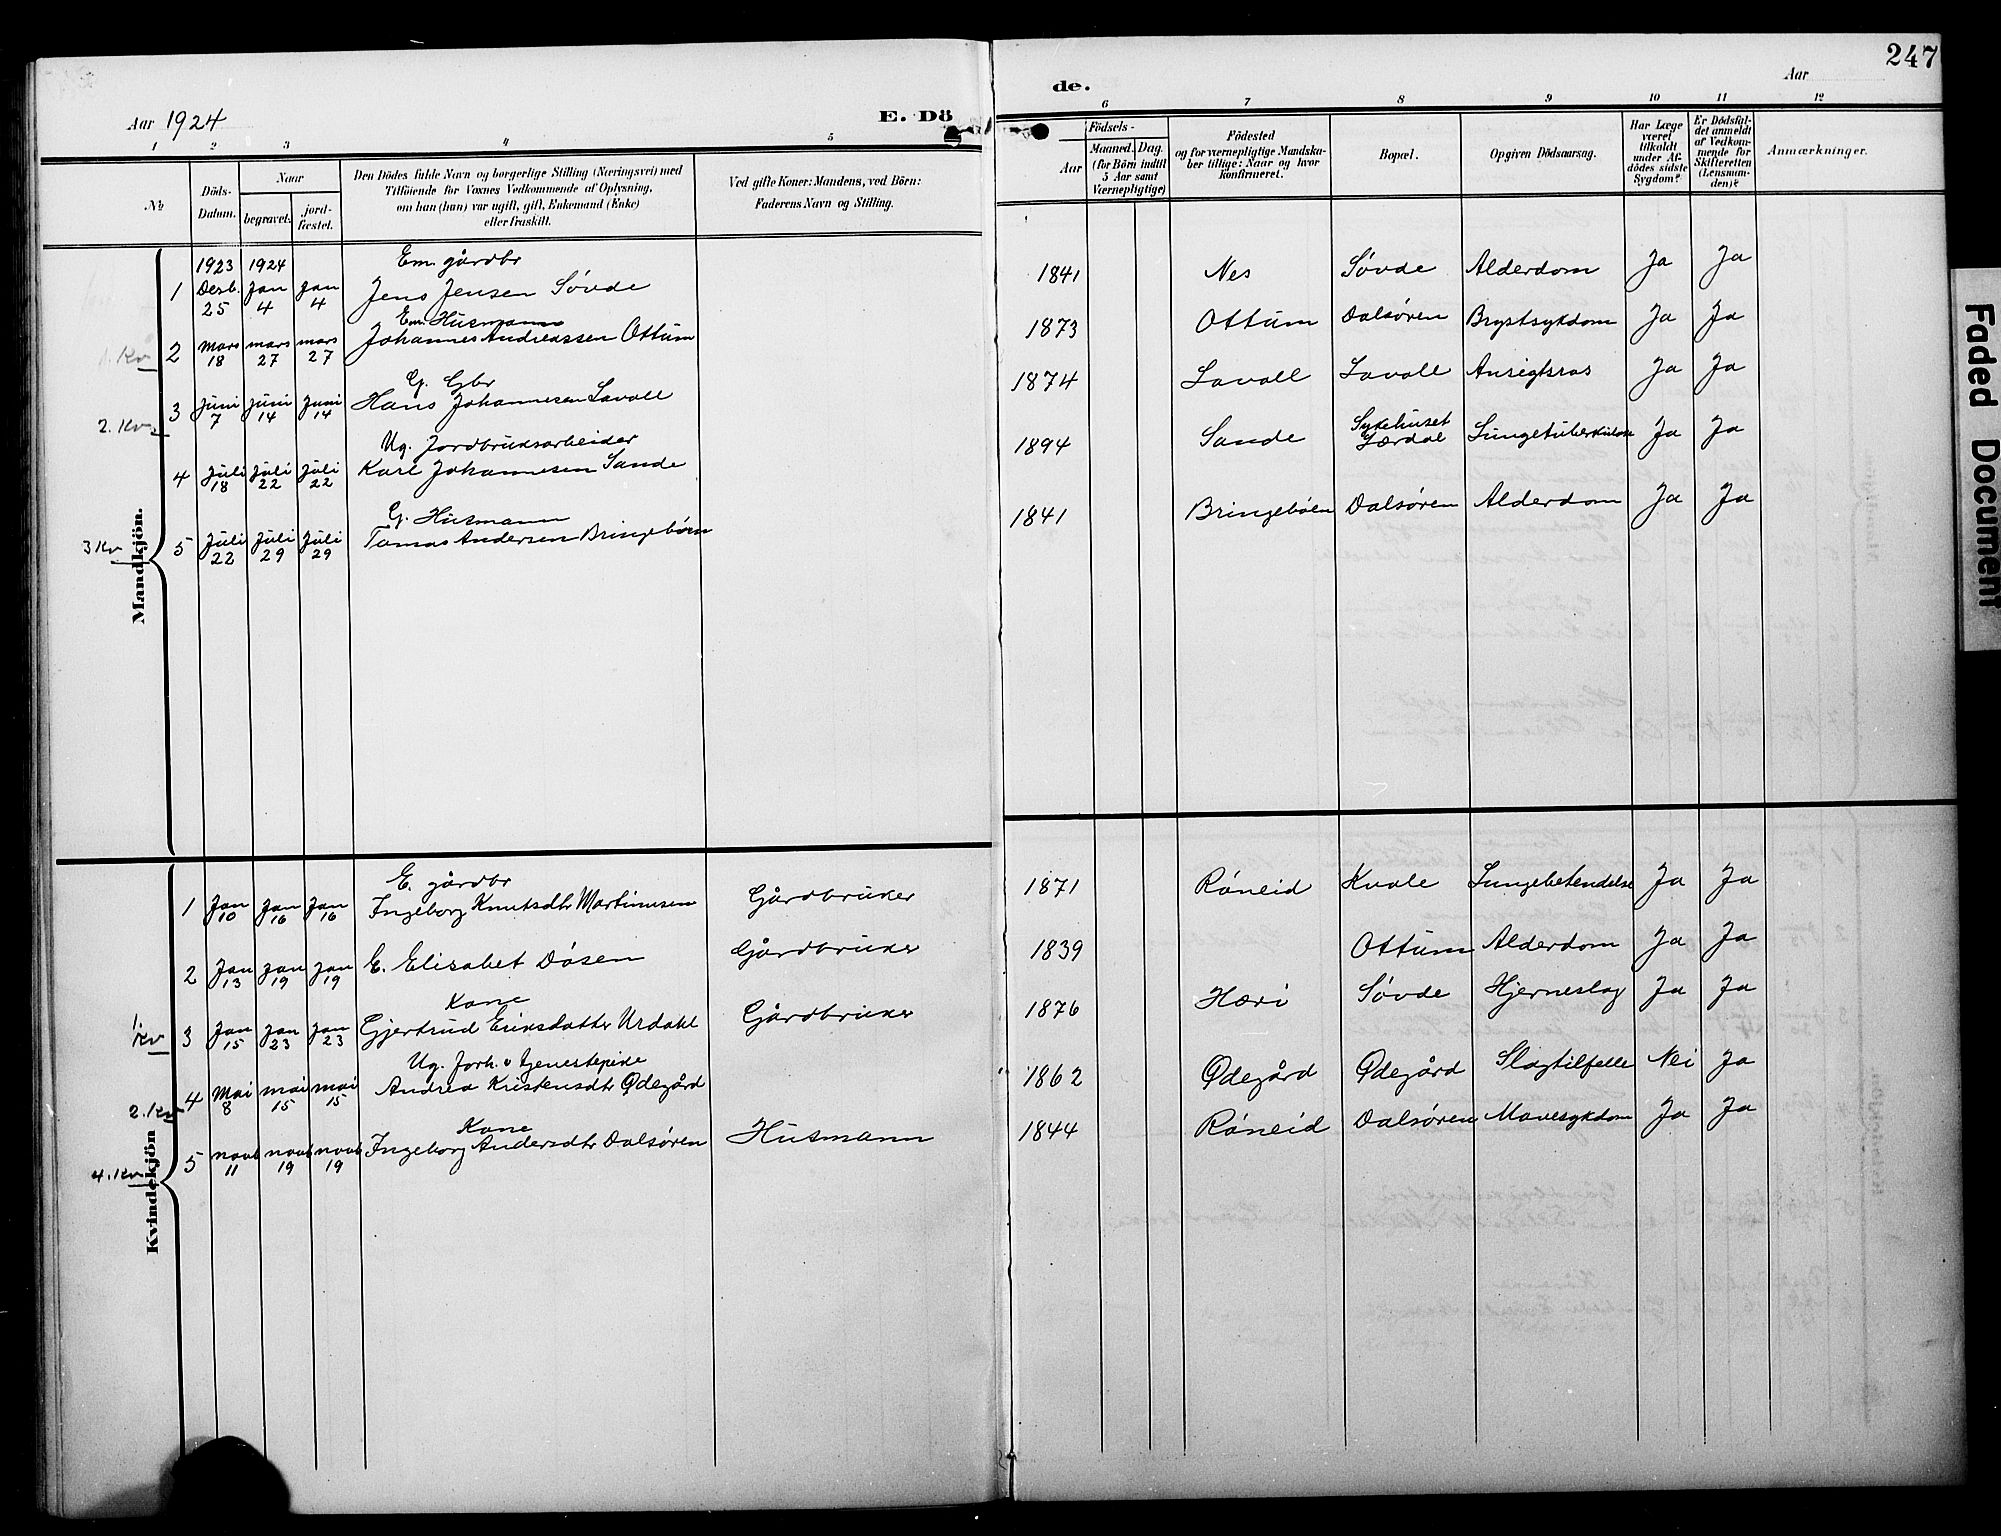 247
Aar 1924
E. Dö
de.
Aar
1 2 3 4 5 6 7 8 9 10 11 12
№
Döds-Datum.
Naar
begravet.
jord-fæstet.
Den Dödes fulde Navn og borgerlige Stilling (Næringsvei) med
Tilföiende for Voxnes Vedkommende af Oplysning,
om han (hun) var ugift, gift, Enkemand (Enke)
eller fraskilt.
Ved gifte Koner: Mandens, ved Börn:
Faderens Navn og Stilling.
Födsels-
Aar
Maaned. Dag.
(for Börn indtil
5 Aar samt
Værnepligtige)
Födested
og for værnepligtige Mandska-
ber tillige: Naar og hvor
konfirmeret.
Bopæl.
Opgiven Dödsaarsag.
Har Læge
været
tilkaldt
under Af-
dödes sidste
Sygdom?
Er Dödsfal-
det anmeldt
af Vedkom-
mende for
Skifteretten
(Lensman-
den)?
Anmærkninger.
Mandkjön.
1923 1924 Em. gårdbr
1 Desb. 25 Jan 4 Jan 4 Jens Jensen Søvde 1841 Nes Søvde Alderdom Ja Ja
Em. Husmann
1. Kv 2 Mars 18 mars 27 mars 27 Johannes Andreassen Ottum 1873 Ottum Dalsøren Brystsykdom Ja Ja
G. Gbr
2. Kv. 3 Juni 7 Juni 14 Juni 14 Hans Johannesen Lavoll 1874 Lavoll Lavoll Ansigtsros Ja Ja
Ug. Jordbruksarbeider
4 Juli 18 Juli 22 Juli 22 Karl Johannesen Sande 1894 Sande Sykehuset Lærdal Lungetuberkulose Ja Ja
G. Husmann
3 Kv 5 Juli 22 Juli 29 Juli 29 Tomas Andersen Bringebøen 1841 Bringebøen Dalsøren Alderdom Ja Ja
Kvindekjön
E. gårdbr
1 Jan 10 Jan 16 Jan 16 Ingeborg Knutsdtr Martinusen Gårdbruker 1871 Røneid Kvale Lungebetendelse Ja Ja
2 Jan 13 Jan 19 Jan 19 E. Elisabet Døsen Gårdbruker 1839 Ottum Alderdom Ja Ja
Kone
1. Kv 3 Jan 15 Jan 23 Jan 23 Gjertrud Eriksdatter Urdahl Gårdbruker 1876 Søvde Hjerneslag Ja Ja
Ug. Forh. v tjenestepike
2. Kv 4 Mai 8 mai 15 mai 15 Andrea Kristensdtr Ødegård 1862 Ødegård Ødegård Slagtilfelle Nei Ja
Kone
4. Kv. 5 novb 11 novb 19 novb 19 Ingeborg Andersdtr Dalsøren Husmann 1844 Røneid Dalsøren Mavesykdom Ja Ja
Faded Document